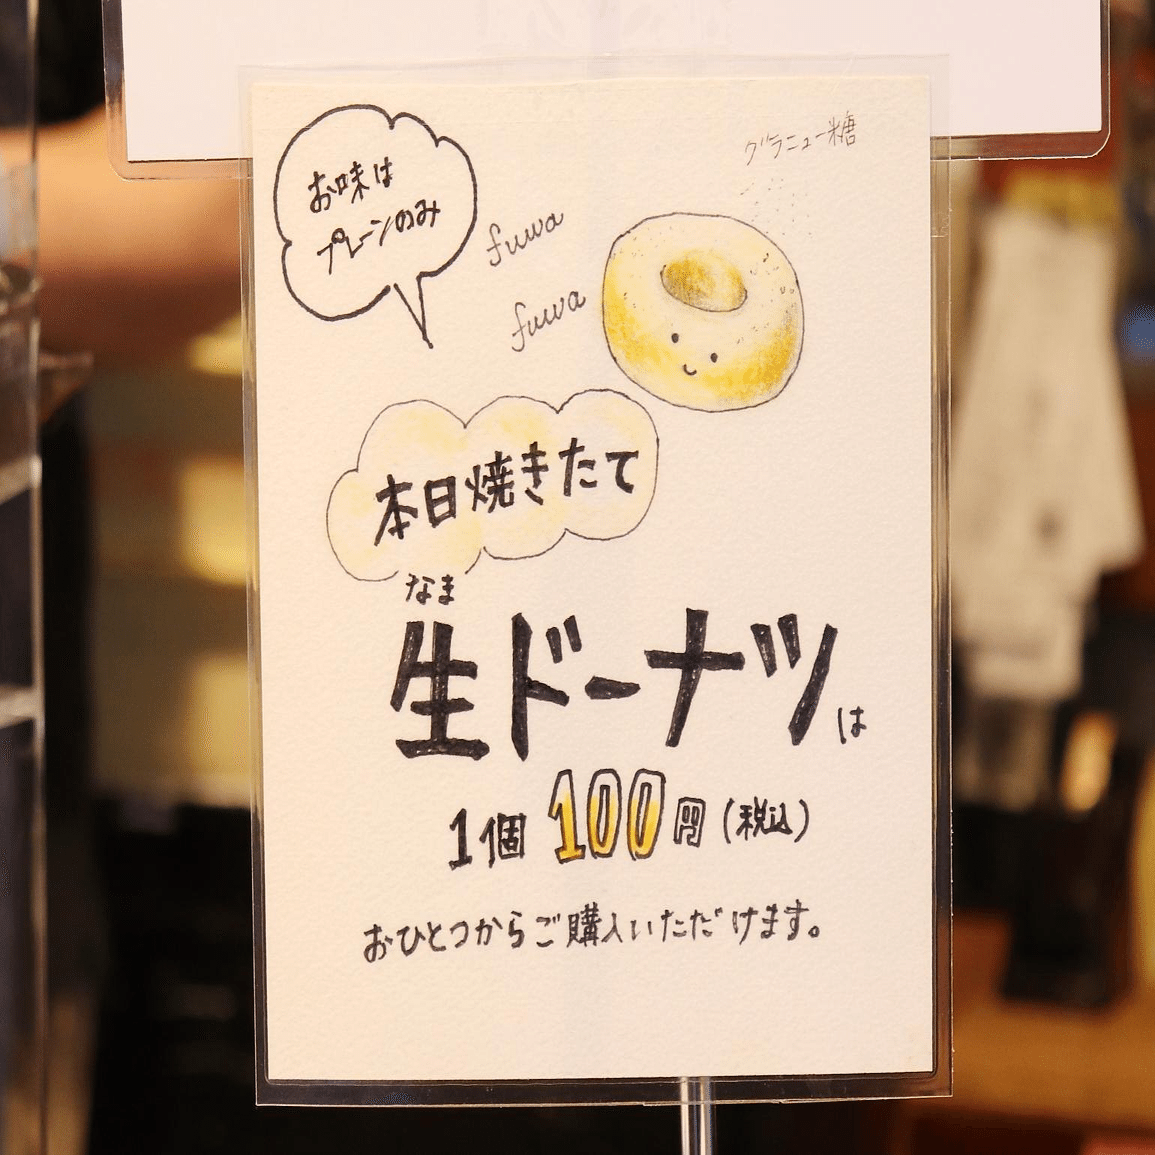 お味は
プレーンのみ
グラニュー糖
fuwa
fuwa
本日焼きたて
なま
生ドーナツは
1個 100円(税込)
おひとつからご購入いただけます。